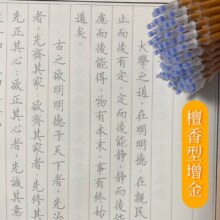 大學之道在明明德在親民
止而後有定定而後能靜靜而後
慮而後能得物有本末事有終始
道矣
古之欲明明德于天下者先治
者先齊其家欲齊其家者先修其
先正其心欲正其心者先誠其意
檀香型增金